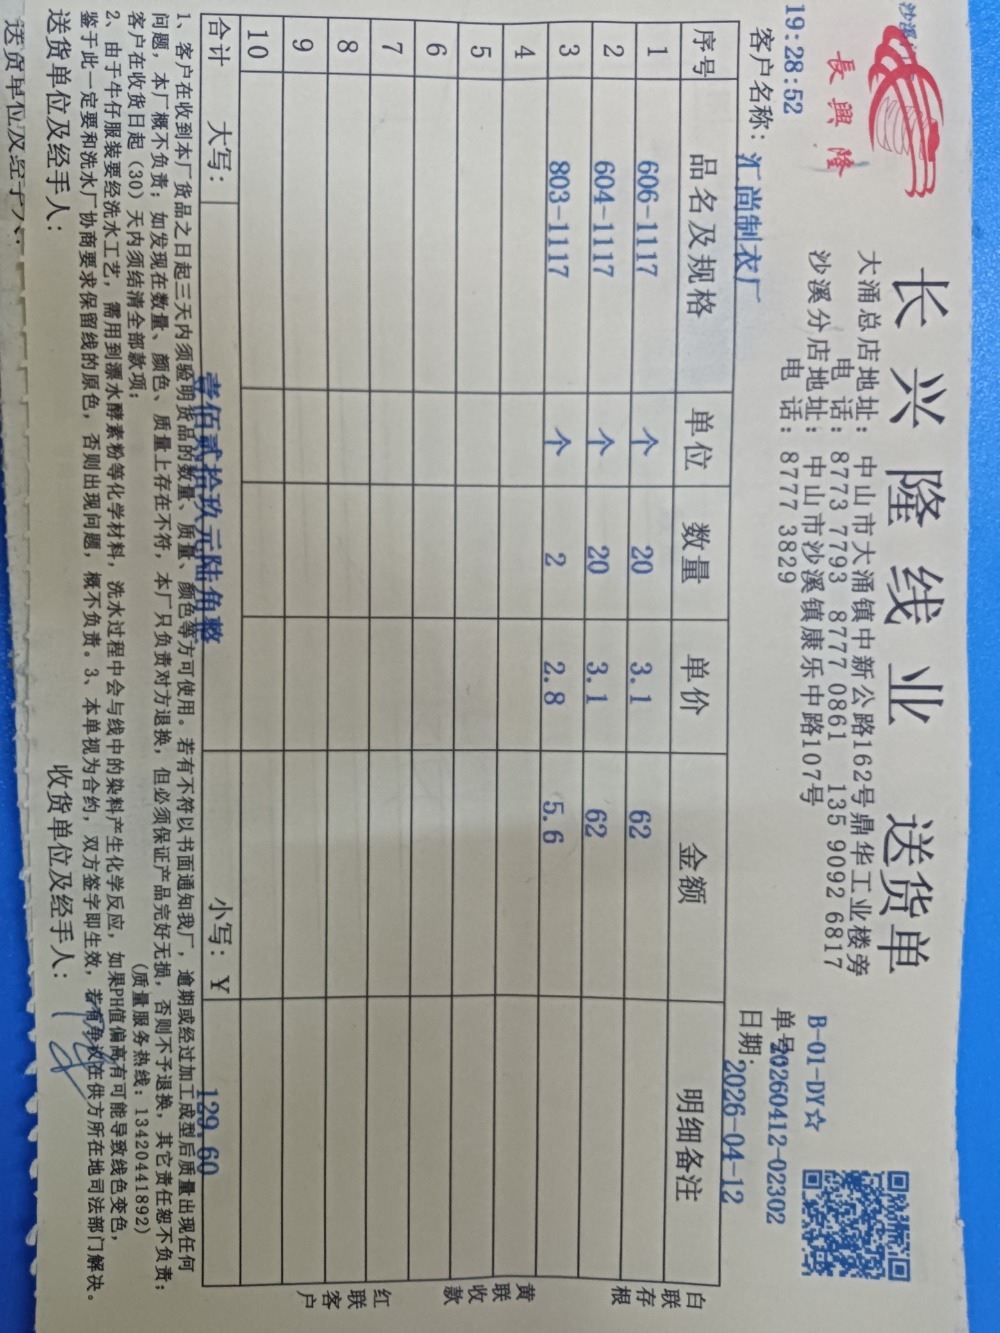 沙溪
長興隆
长兴隆线业 送货单
大涌总店地址：中山市大涌镇中新公路162号鼎华工业楼旁
电 话：8773 7793 8777 0861 135 9092 6817
沙溪分店地址：中山市沙溪镇康乐中路107号
电 话：8777 3829
B-01-DY☆
19:28:52
单号20260412-02302
客户名称：汇尚制衣厂
日期：2026-04-12
序号 品名及规格 单位 数量 单价 金额 明细备注
1 606-1117 个 20 3.1 62
2 604-1117 个 20 3.1 62
3 803-1117 个 2 2.8 5.6
4
5
6
7
8
9
10
合计 大写：壹佰贰拾玖元陆角整 小写：￥ 129.60
白联存根
黄联收款
红联客户
1、客户在收到本厂货品之日起三天内须验明货品的数量、质量、颜色等方可使用。若有不符以书面通知我厂，逾期或经过加工成型后质量出现任何
问题，本厂概不负责；如发现在数量、颜色、质量上存在不符，本厂只负责对方退换，但必须保证产品完好无损，否则不予退换，其它责任恕不负责；
客户在收货日起（30）天内须结清全部款项； （质量服务热线：13420441892）
2、由于牛仔服装要经洗水工艺，需用到漂水酵素粉等化学材料，洗水过程中会与线中的染料产生化学反应，如果PH值偏高有可能导致线色变色，
鉴于此一定要和洗水厂协商要求保留线的原色，否则出现问题，概不负责。3、本单视为合约，双方签字即生效，若有争议在供方所在地司法部门解决。
送货单位及经手人： 收货单位及经手人：
送货单位及经手人：